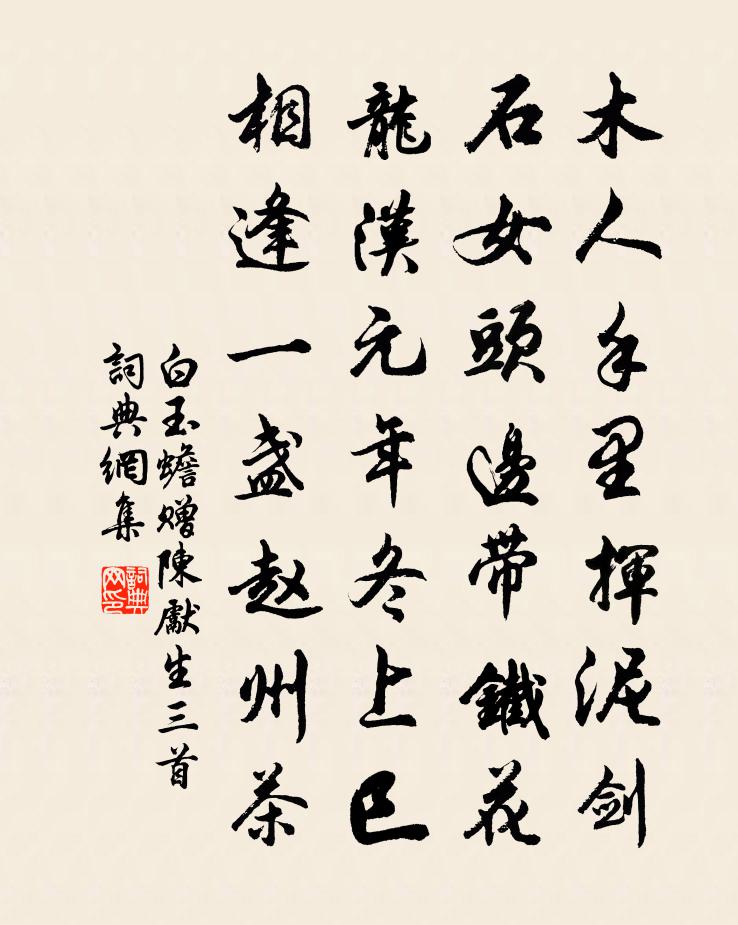 木人手里揮泥剑
石女頭邊带鐵花
龍漢元年冬上巳
相逢一盏赵州茶
白玉蟾赠陳獻生三首
詞典網集
詞典网印